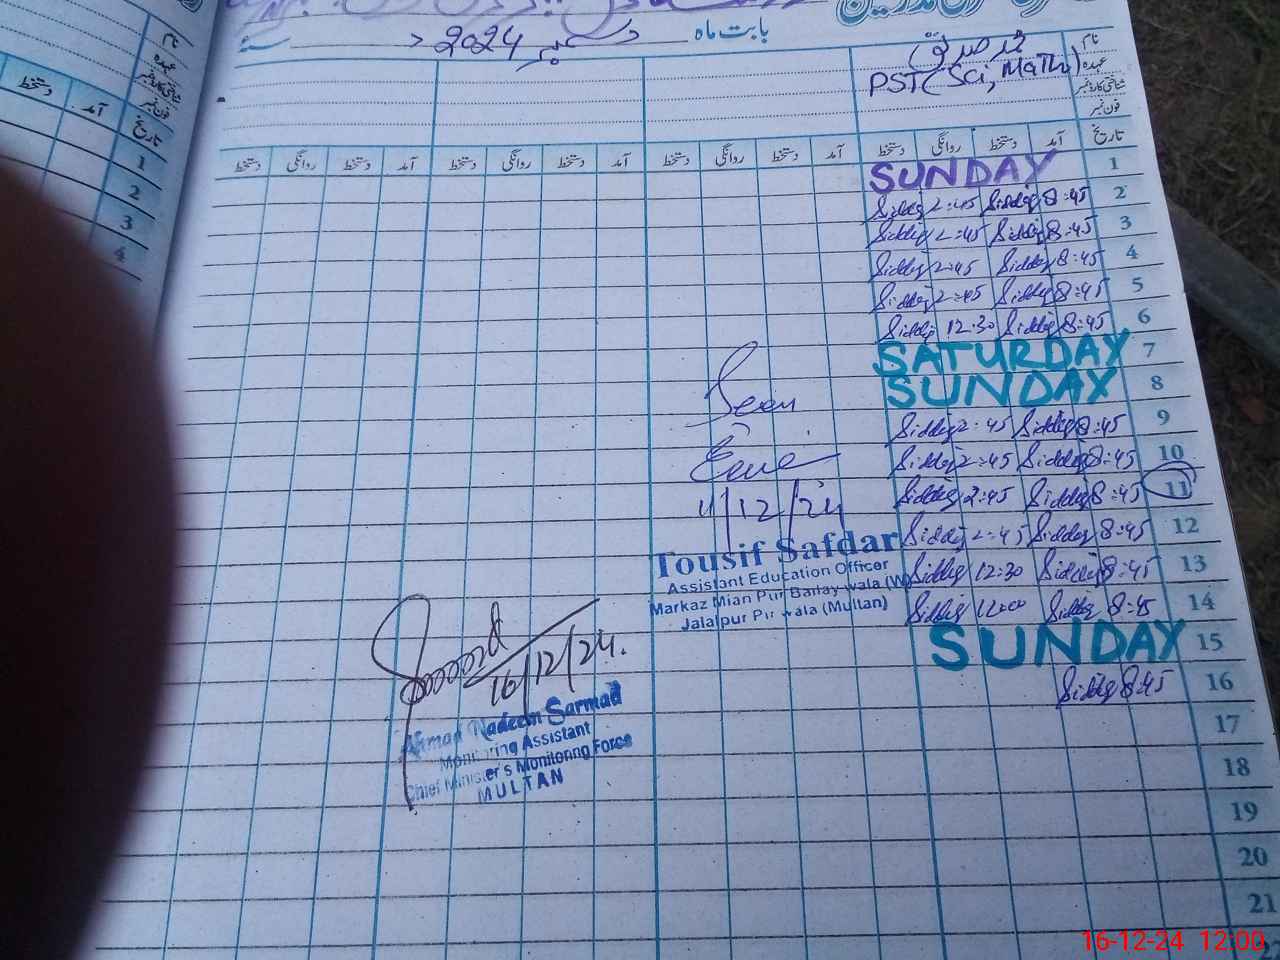 بابت ماہ دسمبر 2024ء
نام محمد صدیق
عہدہ PST(Sci, Math)
شناختی کارڈ نمبر
فون نمبر
تاریخ آمد دستخط روانگی دستخط آمد دستخط روانگی دستخط آمد دستخط روانگی دستخط آمد دستخط روانگی دستخط
1 SUNDAY
2 8:45 Siddiq 2:45 Siddiq
3 8:45 Siddiq 2:45 Siddiq
4 8:45 Siddiq 2:45 Siddiq
5 8:45 Siddiq 2:45 Siddiq
6 8:45 Siddiq 12:30 Siddiq
7 SATURDAY
8 SUNDAY
9 8:45 Siddiq 2:45 Siddiq
10 8:45 Siddiq 2:45 Siddiq
11 8:45 Siddiq 2:45 Siddiq
12 8:45 Siddiq 2:45 Siddiq
13 8:45 Siddiq 12:30 Siddiq
14 8:45 Siddiq 12:00 Siddiq
15 SUNDAY
16 8:45 Siddiq
17
18
19
20
21
Seen
11/12/24
Tousif Safdar
Assistant Education Officer
Markaz Mian Pur Banay wala (W)
Jalalpur Pir wala (Multan)
16/12/24.
Ahmad Nadeem Sarmad
Monitoring Assistant
Chief Minister's Monitoring Force
MULTAN
نام
عہدہ
شناختی کارڈ نمبر
فون نمبر
تاریخ آمد دستخط
1
2
3
4
16-12-24 12:00